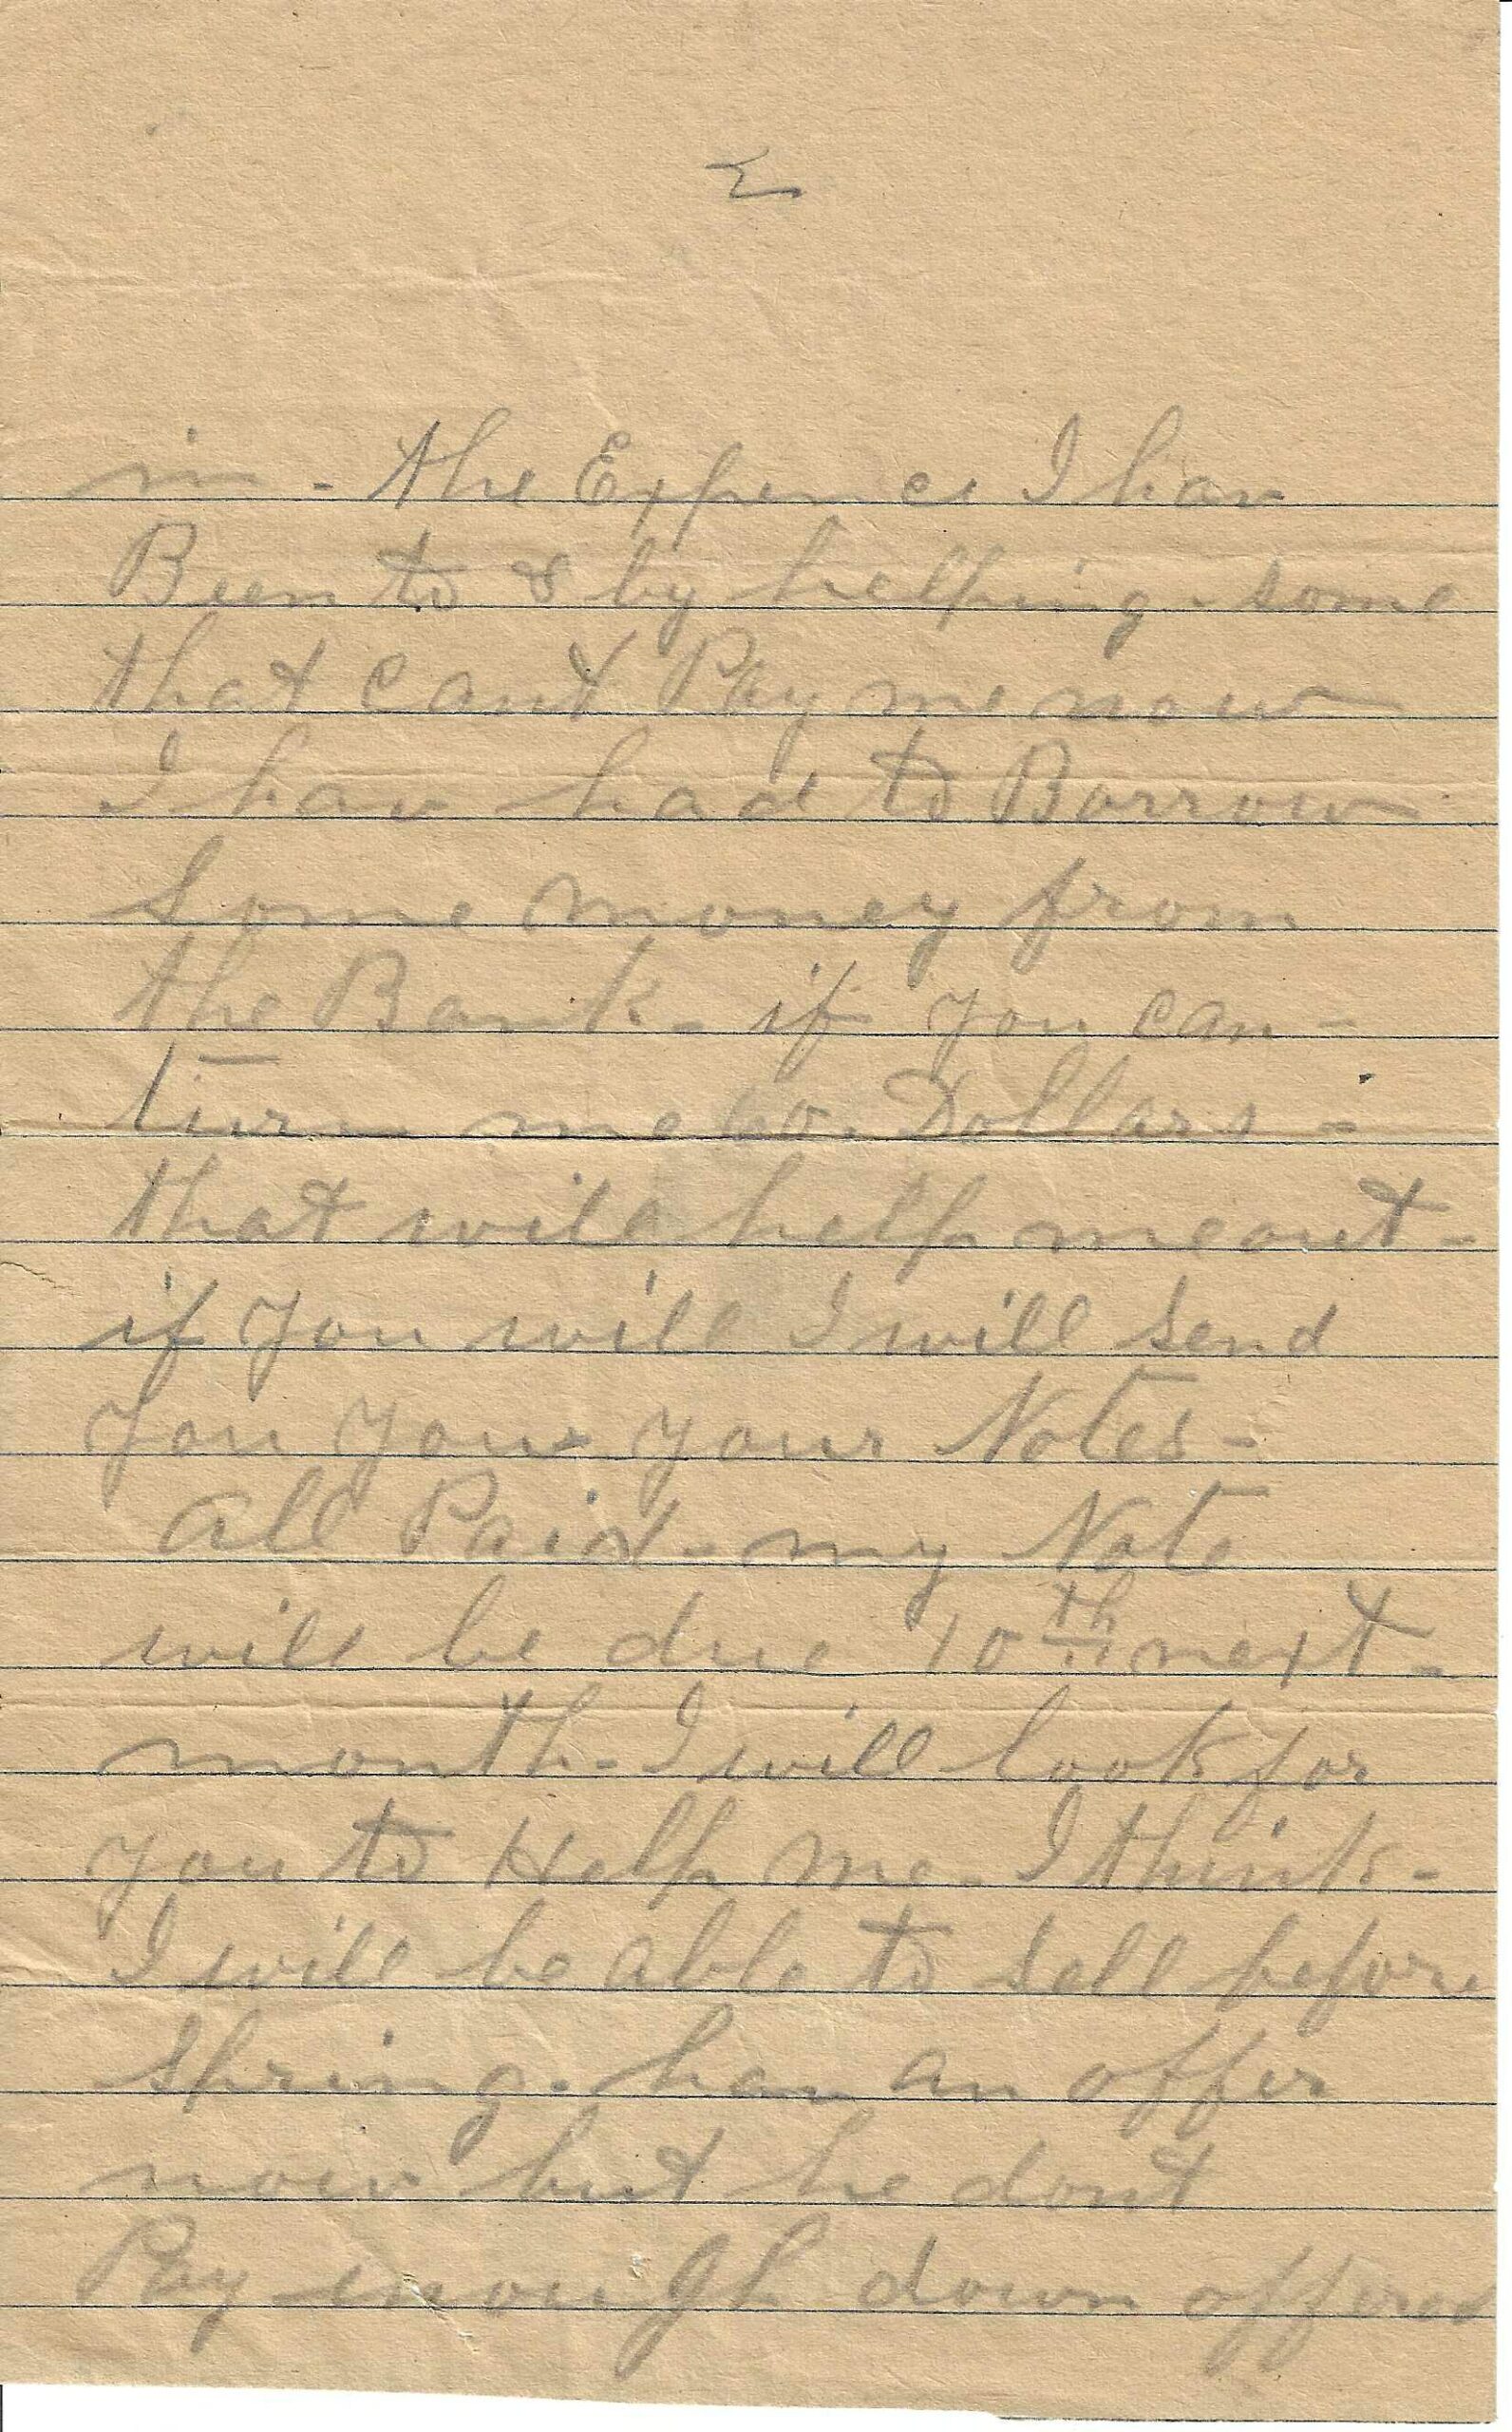 2
in - the Expences I hav
Been to & by helping some
that cant Pay me now
I hav had to Borrow
Some money from
the Bank - if you can -
turn me 60. Dollars -
that will help me out -
if you will I will send
you your your Notes -
all Paid - my Note
will be due 10th next -
month - I will look for
you to Help me. I think -
I will be able to sell before
spring. hav an offer
now but he dont
Pay enough down offered